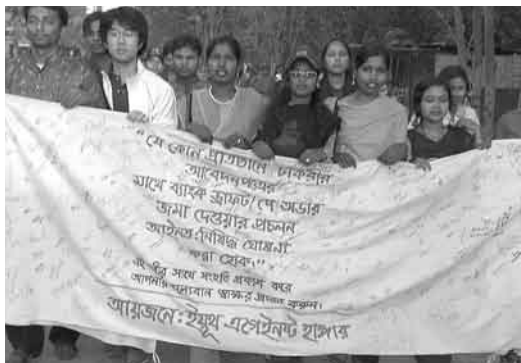 "যে কোন প্রতিষ্ঠানে চাকরীর
আবেদনপত্রের
সাথে ব্যাংক ড্রাফট/পে অর্ডার
জমা দেওয়ার প্রচলন
আইনত:নিষিদ্ধ ঘোষনা
করা হোক"
এই দাবীর সাথে সংহতি প্রকাশ করে
আপনার মূল্যবান স্বাক্ষর প্রদান করুন।
আয়োজনে:ইয়ুথ এগেইনস্ট হাঙ্গার